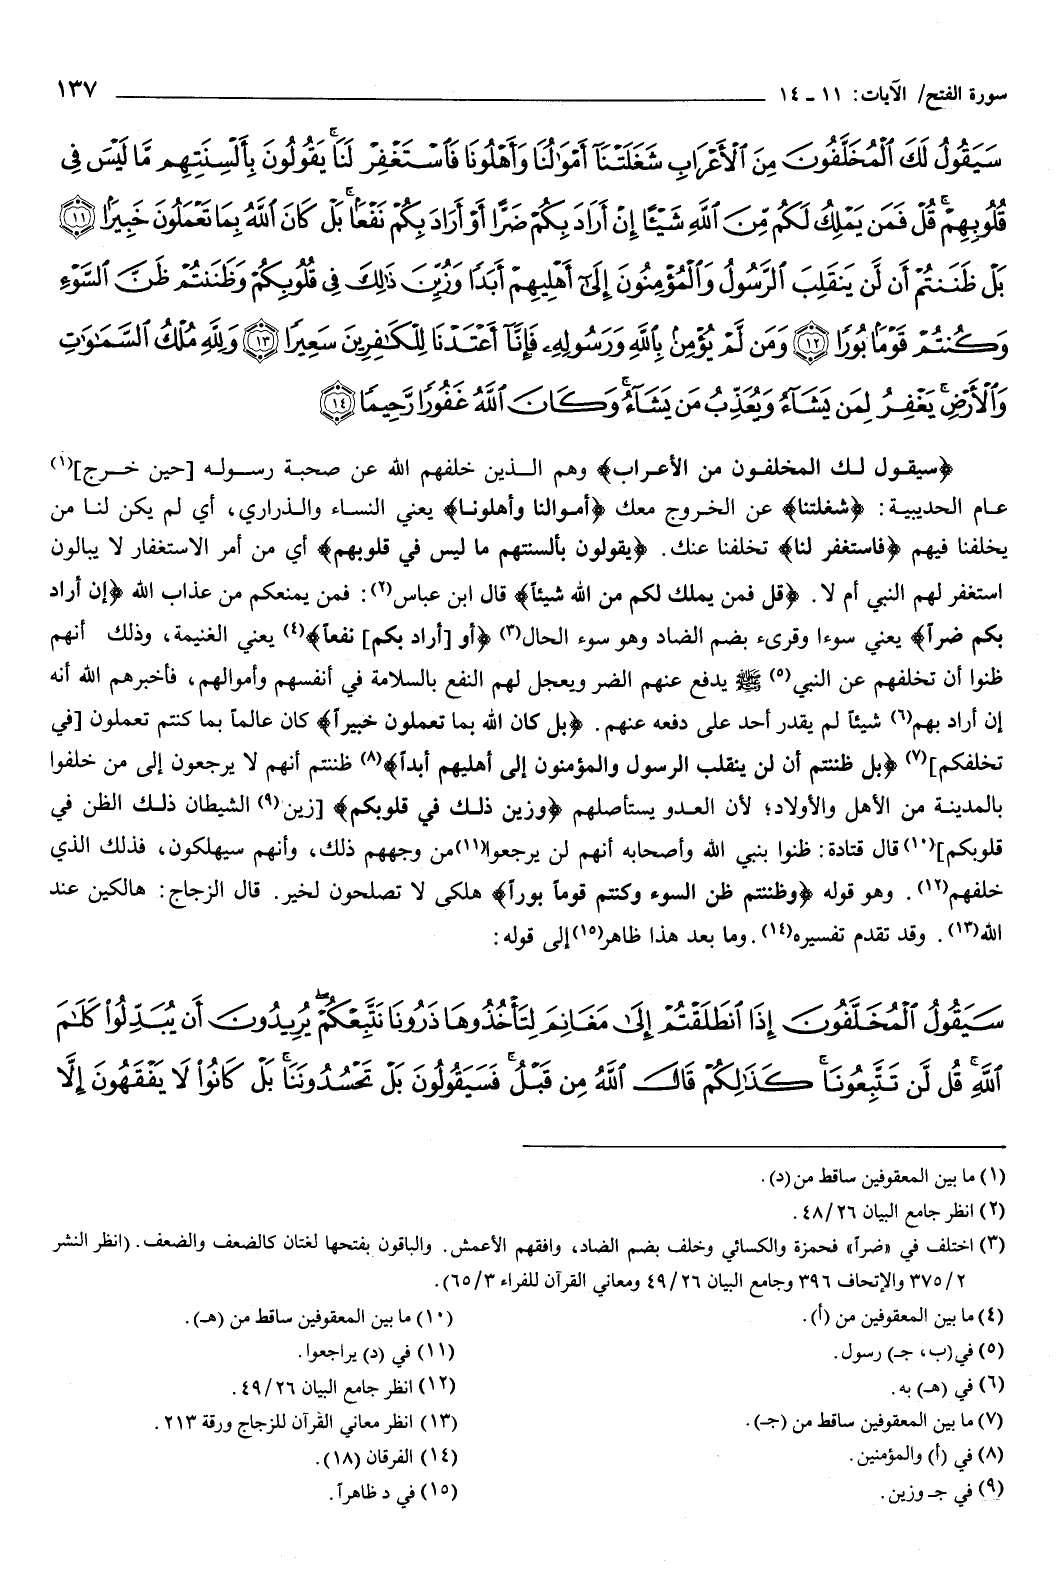 سورة الفتح/ الآيات: ١١ ـ ١٤ ١٣٧
سَيَقُولُ لَكَ ٱلْمُخَلَّفُونَ مِنَ ٱلْأَعْرَابِ شَغَلَتْنَآ أَمْوَٰلُنَا وَأَهْلُونَا فَٱسْتَغْفِرْ لَنَا ۚ يَقُولُونَ بِأَلْسِنَتِهِم مَّا لَيْسَ فِى
قُلُوبِهِمْ ۚ قُلْ فَمَن يَمْلِكُ لَكُم مِّنَ ٱللَّهِ شَيْـًٔا إِنْ أَرَادَ بِكُمْ ضَرًّا أَوْ أَرَادَ بِكُمْ نَفْعًۢا ۚ بَلْ كَانَ ٱللَّهُ بِمَا تَعْمَلُونَ خَبِيرًا ﴿١١﴾
بَلْ ظَنَنتُمْ أَن لَّن يَنقَلِبَ ٱلرَّسُولُ وَٱلْمُؤْمِنُونَ إِلَىٰٓ أَهْلِيهِمْ أَبَدًا وَزُيِّنَ ذَٰلِكَ فِى قُلُوبِكُمْ وَظَنَنتُمْ ظَنَّ ٱلسَّوْءِ
وَكُنتُمْ قَوْمًۢا بُورًا ﴿١٢﴾ وَمَن لَّمْ يُؤْمِنۢ بِٱللَّهِ وَرَسُولِهِۦ فَإِنَّآ أَعْتَدْنَا لِلْكَٰفِرِينَ سَعِيرًا ﴿١٣﴾ وَلِلَّهِ مُلْكُ ٱلسَّمَٰوَٰتِ
وَٱلْأَرْضِ ۚ يَغْفِرُ لِمَن يَشَآءُ وَيُعَذِّبُ مَن يَشَآءُ ۚ وَكَانَ ٱللَّهُ غَفُورًا رَّحِيمًا ﴿١٤﴾
﴿سيقول لك المخلفون من الأعراب﴾ وهم الذين خلفهم الله عن صحبة رسوله [حين خرج](١)
عام الحديبية: ﴿شغلتنا﴾ عن الخروج معك ﴿أموالنا وأهلونا﴾ يعني النساء والذراري، أي لم يكن لنا من
يخلفنا فيهم ﴿فاستغفر لنا﴾ تخلفنا عنك. ﴿يقولون بألسنتهم ما ليس في قلوبهم﴾ أي من أمر الاستغفار لا يبالون
استغفر لهم النبي أم لا. ﴿قل فمن يملك لكم من الله شيئاً﴾ قال ابن عباس(٢): فمن يمنعكم من عذاب الله ﴿إن أراد
بكم ضراً﴾ يعني سوءا وقرىء بضم الضاد وهو سوء الحال(٣) ﴿أو [أراد بكم] نفعاً﴾(٤) يعني الغنيمة، وذلك أنهم
ظنوا أن تخلفهم عن النبي(٥) ﷺ يدفع عنهم الضر ويعجل لهم النفع بالسلامة في أنفسهم وأموالهم، فأخبرهم الله أنه
إن أراد بهم(٦) شيئاً لم يقدر أحد على دفعه عنهم. ﴿بل كان الله بما تعملون خبيراً﴾ كان عالماً بما كنتم تعملون [في
تخلفكم](٧) ﴿بل ظننتم أن لن ينقلب الرسول والمؤمنون إلى أهليهم أبداً﴾(٨) ظننتم أنهم لا يرجعون إلى من خلفوا
بالمدينة من الأهل والأولاد؛ لأن العدو يستأصلهم ﴿وزين ذلك في قلوبكم﴾ [زين(٩) الشيطان ذلك الظن في
قلوبكم](١٠) قال قتادة: ظنوا بنبي الله وأصحابه أنهم لن يرجعوا(١١) من وجههم ذلك، وأنهم سيهلكون، فذلك الذي
خلفهم(١٢). وهو قوله ﴿وظننتم ظن السوء وكنتم قوماً بوراً﴾ هلكى لا تصلحون لخير. قال الزجاج: هالكين عند
الله(١٣). وقد تقدم تفسيره(١٤). وما بعد هذا ظاهر(١٥) إلى قوله:
سَيَقُولُ ٱلْمُخَلَّفُونَ إِذَا ٱنطَلَقْتُمْ إِلَىٰ مَغَانِمَ لِتَأْخُذُوهَا ذَرُونَا نَتَّبِعْكُمْ ۖ يُرِيدُونَ أَن يُبَدِّلُوا۟ كَلَٰمَ
ٱللَّهِ ۚ قُل لَّن تَتَّبِعُونَا ۚ كَذَٰلِكُمْ قَالَ ٱللَّهُ مِن قَبْلُ ۚ فَسَيَقُولُونَ بَلْ تَحْسُدُونَنَا ۚ بَلْ كَانُوا۟ لَا يَفْقَهُونَ إِلَّا
(١) ما بين المعقوفين ساقط من (د).
(٢) انظر جامع البيان ٢٦/ ٤٨.
(٣) اختلف في «ضراً» فحمزة والكسائي وخلف بضم الضاد، وافقهم الأعمش. والباقون بفتحها لغتان كالضعف والضعف. (انظر النشر
٢/ ٣٧٥ والإتحاف ٣٩٦ وجامع البيان ٢٦/ ٤٩ ومعاني القرآن للفراء ٣/ ٦٥).
(٤) ما بين المعقوفين من (أ).
(٥) في (ب، جـ) رسول.
(٦) في (هـ) به.
(٧) ما بين المعقوفين ساقط من (جـ).
(٨) في (أ) والمؤمنين.
(٩) في جـ وزين.
(١٠) ما بين المعقوفين ساقط من (هـ).
(١١) في (د) يراجعوا.
(١٢) انظر جامع البيان ٢٦/ ٤٩.
(١٣) انظر معاني القرآن للزجاج ورقة ٢١٣.
(١٤) الفرقان (١٨).
(١٥) في د ظاهراً.